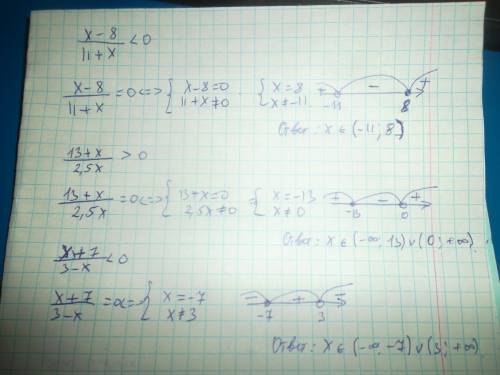 x-8 / 11+x < 0
x-8 / 11+x = 0 <=> { x-8=0 11+x≠0 . { x=8 x≠-11. + -11 - 8 +
Ответ: x ∈ (-11; 8)
13+x / 2,5x > 0
13+x / 2,5x = 0 <=> { 13+x=0 2,5x≠0 = { x=-13 x≠0 + -13 - 0 +
Ответ: x ∈ (-∞, 13) ∪ (0; +∞).
x+7 / 3-x < 0
x+7 / 3-x = 0 <=> { x=-7 x≠3 - -7 + 3 -
Ответ: x ∈ (-∞, -7) ∪ (3; +∞)